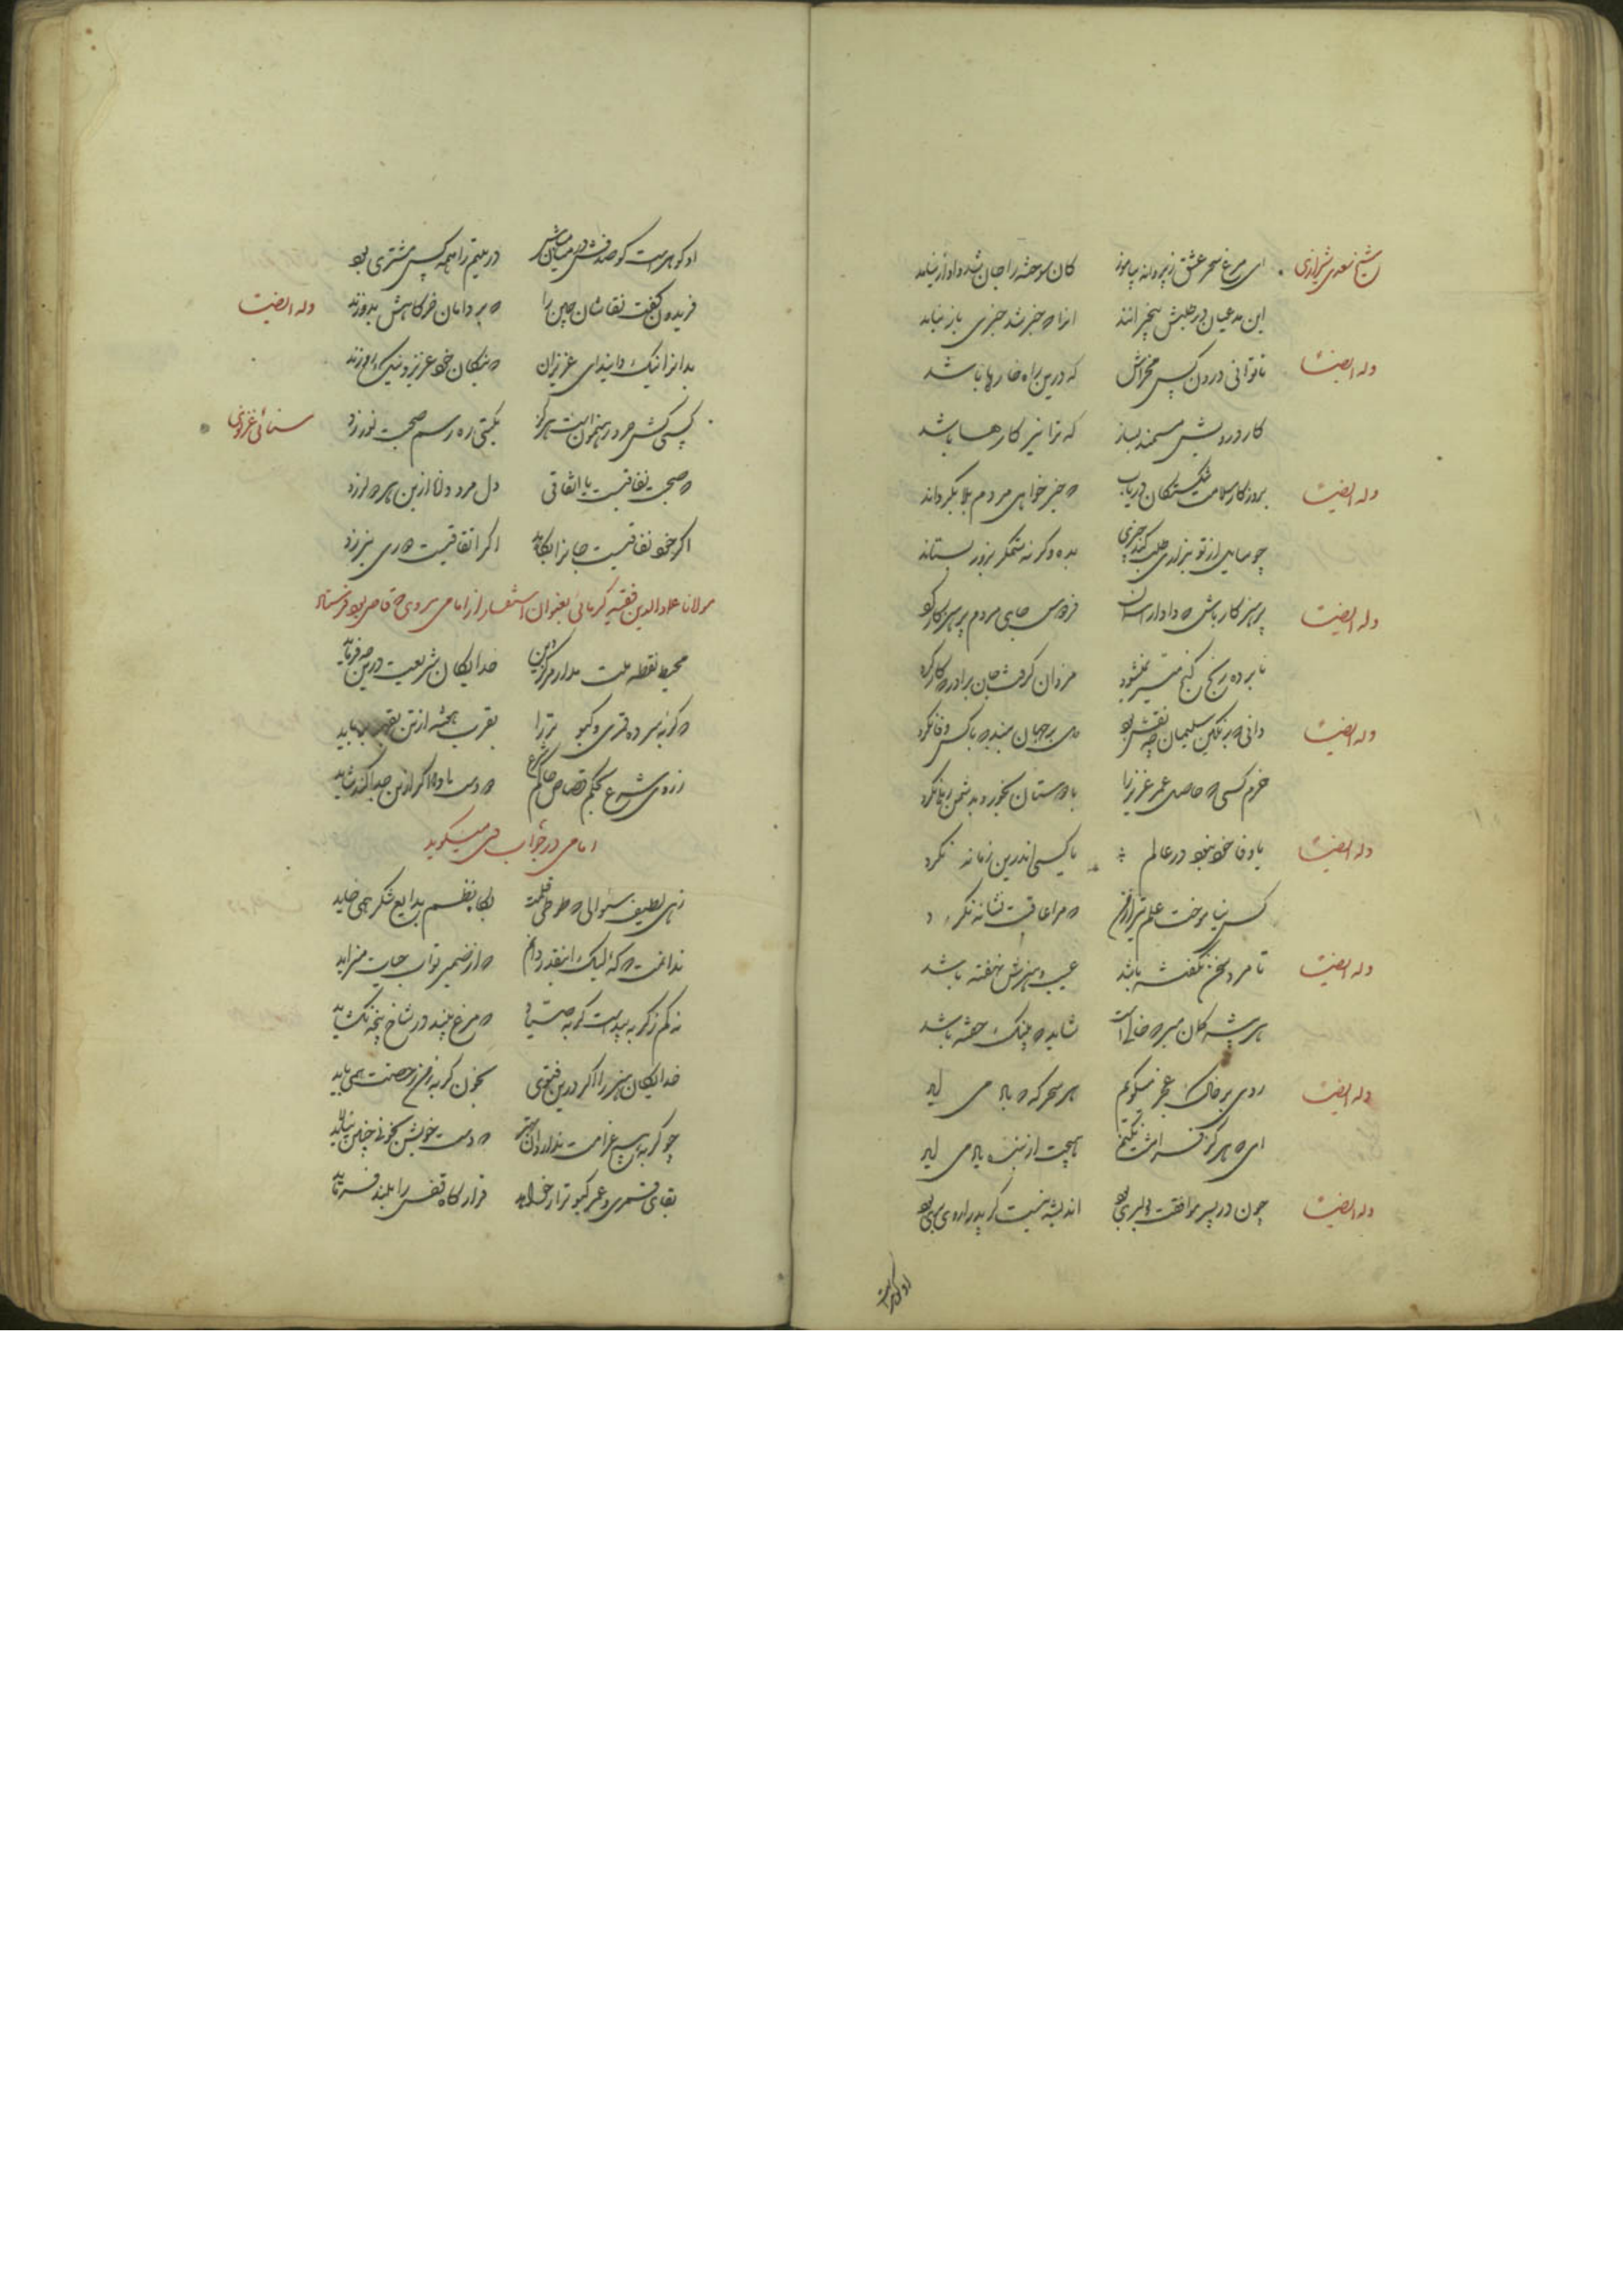 شیخ سعدی شیرازی
ای مرغ سحر عشق ز پروانه بیاموز کان سوخته را جان شد و آواز نیامد
این مدعیان در طلبش بیخبرانند انرا که خبر شد خبری باز نیامد
وله ایضا
تا توانی درون کس مخراش که درین راه خارها باشد
کار درویش مستمند بساز که ترا نیز کارها باشد
وله ایضا
بروزگار سلامت شکستگان دریاب که خیر خواهی مردم بلا بگرداند
چو سایل از تو بزاری طلب کند چیزی بده وگرنه ستمگر بزور بستاند
وله ایضا
پرهیزکار باش که دادار آسمان فردوس جای مردم پرهیزکار کرد
نابرده رنج گنج میسر نمیشود مزد آن گرفت جان برادر که کار کرد
وله ایضا
دانی که بر نگین سلیمان چه نقش بود دل بر جهان مبند که با کس وفا نکرد
خرم کسی که حاصل عمر عزیز را با دوستان بخورد و بدشمن رها نکرد
وله ایضا
یا وفا خود نبود در عالم یا کسی اندرین زمانه نکرد
کس نیاموخت علم تیر از من که مرا عاقبت نشانه نکرد
وله ایضا
تا مرد سخن نگفته باشد عیب و هنرش نهفته باشد
هر بیشه گمان مبر که خالی است شاید که پلنگ خفته باشد
وله ایضا
روی بر خاک عجز میگویم هر سحرگه که باد می آید
ای که هرگز فرامشت نکنم هیچت از بنده یاد می آید
وله ایضا
چون در پسر موافقت و دلبری بود اندیشه نیست گر پدر از وی بری بود
او گوهرست
او گوهرست گو صدفش در میان مباش در یتیم را همه کس مشتری بود
وله ایضا
فریدون گفت نقاشان چین را که بر دامان خرگاهش بدوزند
بدانرا نیک دار ای عزیزان که نیکان خود عزیز و نیک روزند
سنائی غزنوی
کسی کش خرد رهنمونست هرگز بگیتی ره و رسم صحبت نورزد
که صحبت نفاقیست یا اتفاقی دل مرد دانا ازین هر دو لرزد
اگر خود نفاقیست جانرا بکاهد اگر اتفاقیست هجری نیرزد
مولانا عماد الدین فقیه کرمانی بعنوان استفسار از امامی هروی که قاضی بود فرستاد
محیط نقطه ملت مدار مرکز دین خدایگان شریعت درین چه فرماید
که گربه سر ده قمری و کبوتر را بقرب از تن بقهر برباید
ز روی شرع بحکم قصاص حاکم شرع که دست باد اگر ازین جدا کند شاید
امامی در جواب وی میگوید
زهی لطیف سئوالی که طوطی قلمت بگاه نظم بدایع شکر همی خاید
ندانمت که لیک اینقدر دانم که از ضمیر تو آب حیات میزاید
نه کم ز گربه بیدست گربه صیاد که مرغ بیند در شاخ پنجه نگشاید
خدایگان هنر را اگر درین فتوی بخون گربه ز من رخصت همی باید
چو گربه هیچ غرامت ندارد آن بهتر که دست خویش بخون چنین نیالاید
بقای قمری و عمر کبوتر ار خواهد قرارگاه قفس را بلند فرماید